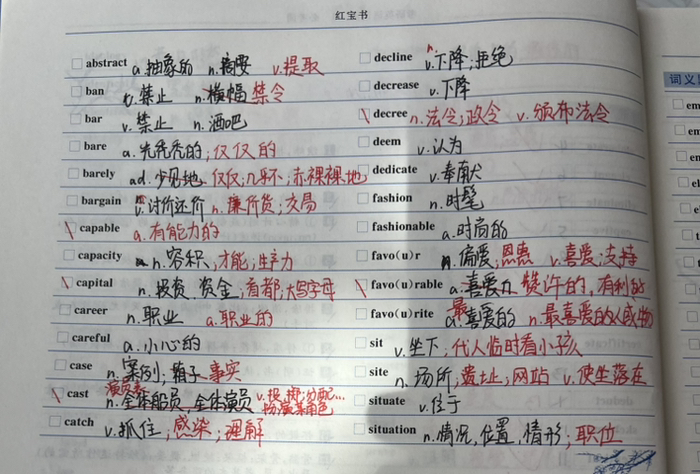 红宝书
abstract a.抽象的 n.摘要 v.提取
ban v.禁止 n.横幅 禁令
bar v.禁止 n.酒吧
bare a.光秃秃的;仅仅的
barely ad.少见地 仅仅;几乎不;赤裸裸地
bargain v.讨价还价 n.廉价货;交易
capable a.有能力的
capacity n.容积;才能;生产力
capital n.投资 资金;首都;大写字母
career n.职业 a.职业的
careful a.小心的
case n.案例;箱子 事实
cast n.全体船员 全体演员 演员表 v.投,掷;分配… 扮演某角色
catch v.抓住;感染;理解
decline n. v.下降;拒绝
decrease v.下降
decree n.法令;政令 v.颁布法令
deem v.认为
dedicate v.奉献
fashion n.时髦
fashionable a.时尚的
favo(u)r n.偏爱;恩惠 v.喜爱;支持
favo(u)rable a.喜爱 赞许的,有利的
favo(u)rite a.最喜爱的 n.最喜爱的人或物
sit v.坐下;代人临时看小孩
site n.场所;遗址;网站 v.使坐落在
situate v.位于
situation n.情况,位置,情形;职位
词义